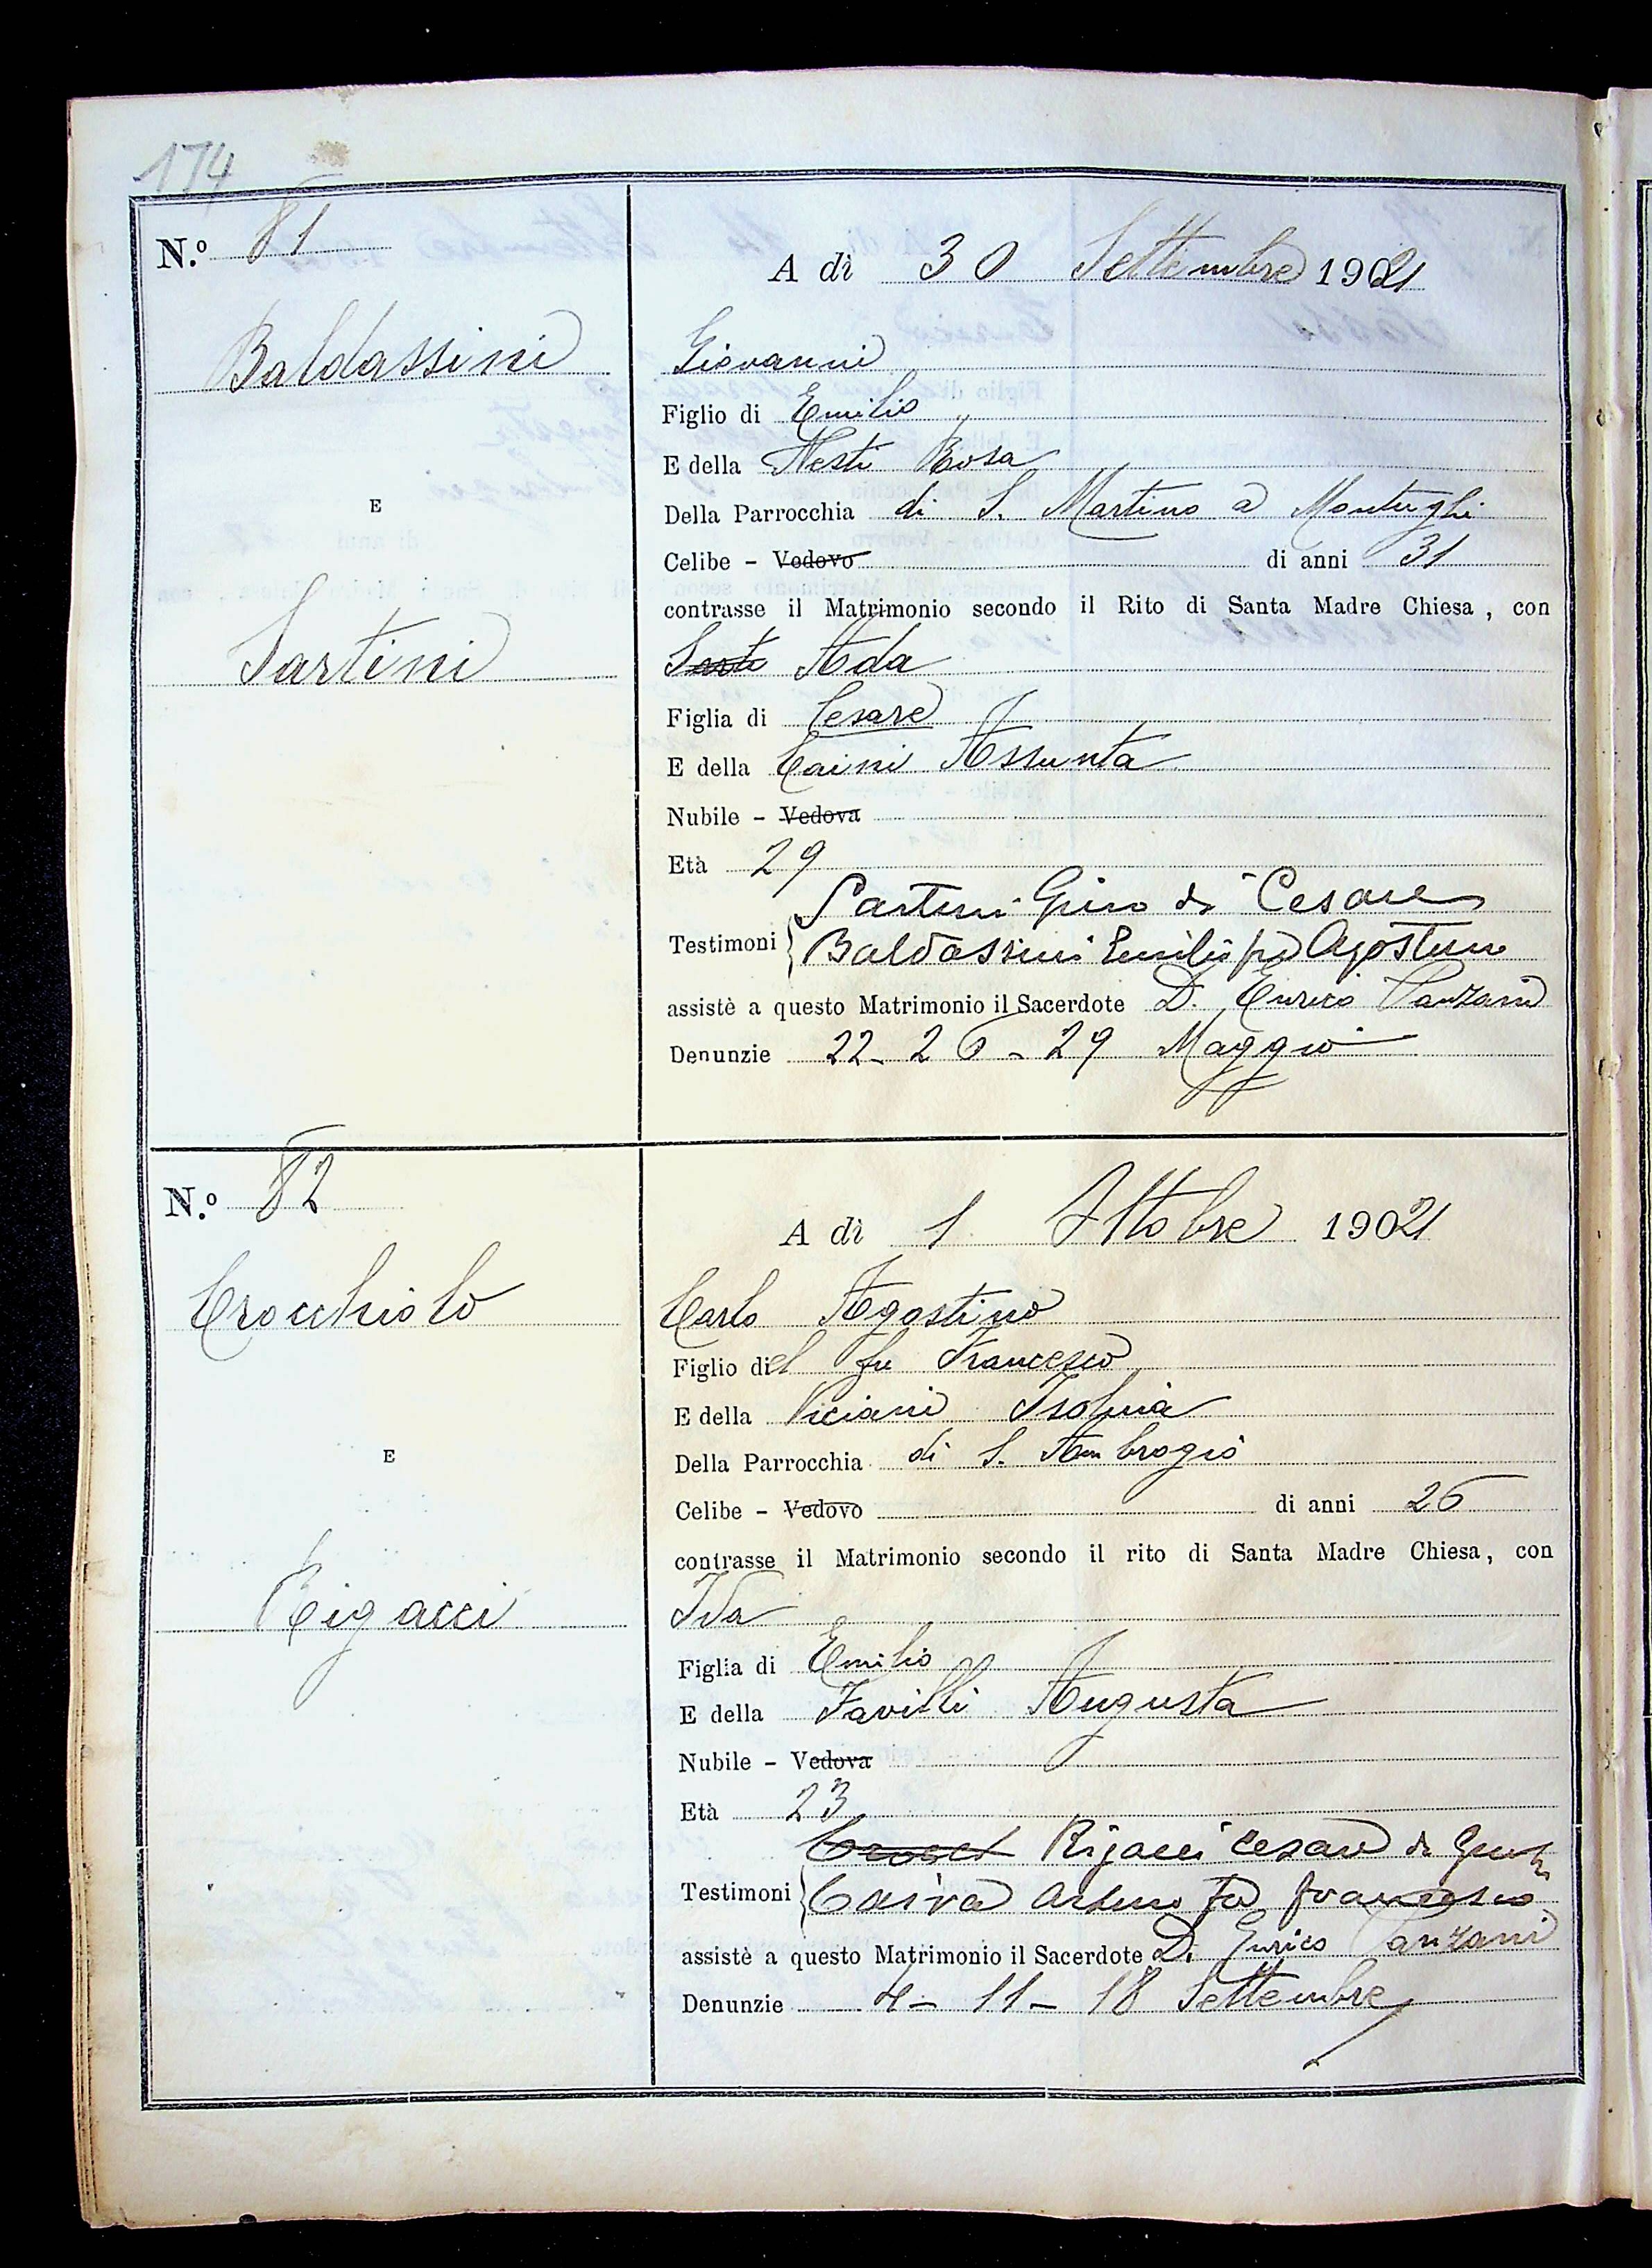 174
N.o 81
A dì 30 Settembre 1921
Baldassini
Giovanni
Figlio di Emilio
E della Nesti Rosa
Della Parrocchia di S. Martino a Montughi
E
Celibe - Vedovo di anni 31
contrasse il Matrimonio secondo il Rito di Santa Madre Chiesa, con
Sartini
Sarti Ada
Figlia di Cesare
E della Caini Assunta
Nubile - Vedova
Età 29
Sartini Gino di Cesare
Testimoni Baldassini Emilio fu Agostino
assistè a questo Matrimonio il Sacerdote D. Enrico Panzani
Denunzie 22 - 26 - 29 Maggio
N.o 82
A dì 1 Ottobre 1921
Crocchiolo
Carlo Agostino
Figlio del fu Francesco
E della Viciani Isolina
Della Parrocchia di S. Ambrogio
E
Celibe - Vedovo di anni 26
contrasse il Matrimonio secondo il rito di Santa Madre Chiesa, con
Rigacci
Ida
Figlia di Emilio
E della Favilli Augusta
Nubile - Vedova
Età 23
Rigacci Cesare di
Testimoni Arturo fu Francesco
assistè a questo Matrimonio il Sacerdote D. Enrico Panzani
Denunzie 4 - 11 - 18 Settembre